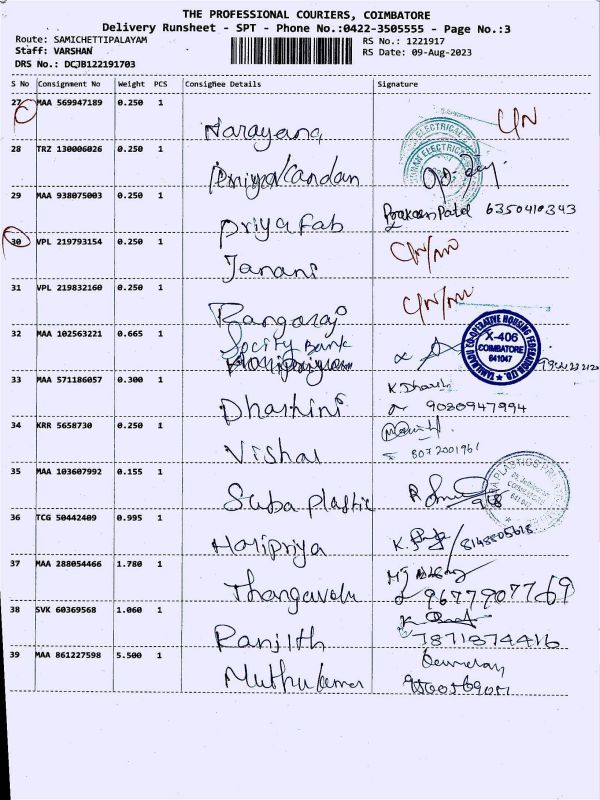 THE PROFESSIONAL COURIERS, COIMBATORE
Delivery Runsheet - SPT - Phone No.:0422-3505555 - Page No.:3
Route: SAMICHETTIPALAYAM
Staff: VARSHAN
DRS No.: DCJB122191703
RS No.: 1221917
RS Date: 09-Aug-2023
S No Consignment No Weight PCS Consignee Details Signature
27 MAA 569947189 0.250 1 Narayana
28 TRZ 130006026 0.250 1
ELECTRICAL
29 MAA 938075003 0.250 1 Priya Fab Patel 6350410343
30 VPL 219793154 0.250 1 Janani
31 VPL 219832160 0.250 1 Rangaraj
32 MAA 102563221 0.665 1 Socity Bank
TAMILNADU CO-OPERATIVE HOUSING FEDERATION LTD.
X-406
COIMBATORE
641047
33 MAA 571186057 0.300 1 Dharini K. Dharani
9080947994
34 KRR 5658730 0.250 1 Vishal
8072001961
35 MAA 103607992 0.155 1 Suba plastic
36 TCG 50442409 0.995 1 Haripriya 8148805618
37 MAA 288054466 1.780 1 Thangavelu
9677907769
38 SVK 60369568 1.060 1 Ranjith
7871874416
39 MAA 861227598 5.500 1 Muthukumar